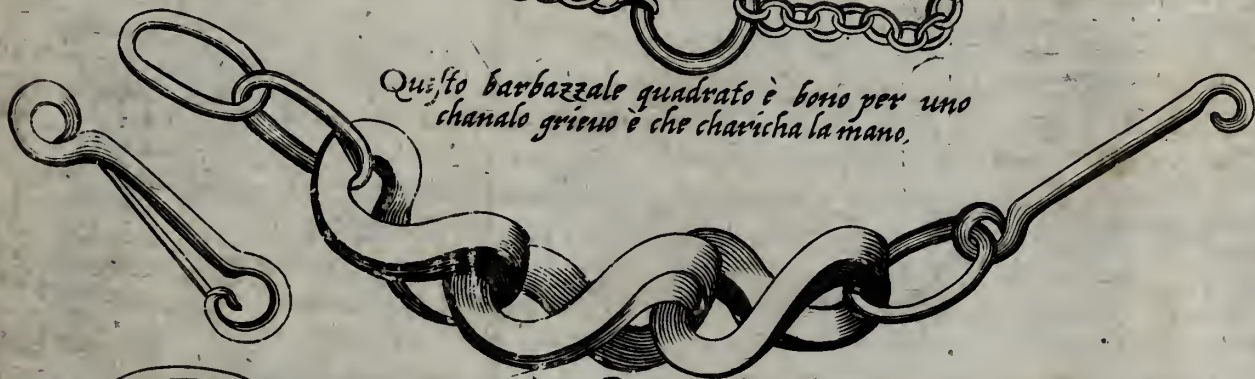 Questo barbazzale quadrato è bono per uno
chaualo grieuo è che charicha la mano,